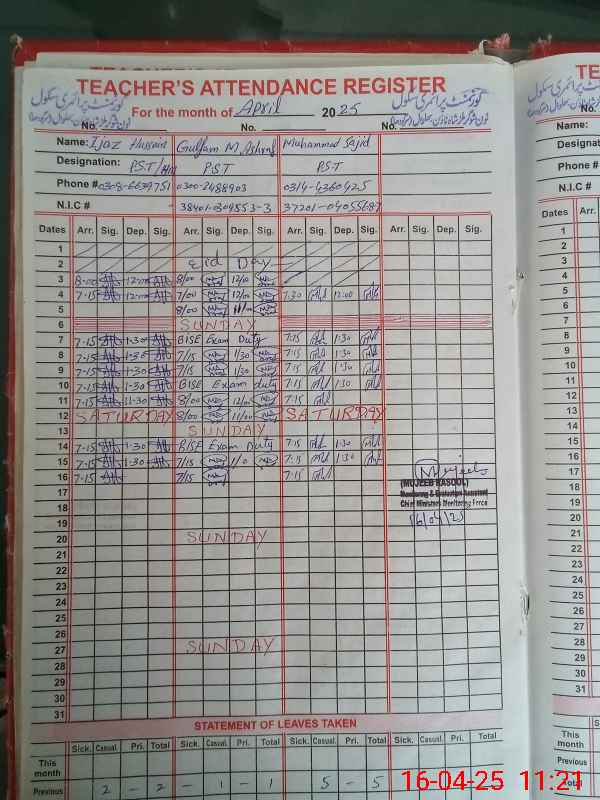 TEACHER'S ATTENDANCE REGISTER
گورنمنٹ پرائمری سکول
For the month of April 2025
گورنمنٹ پرائمری سکول
No. No. No. No.
Name: Ijaz Hussain Gulfam M. Ashraf Muhammad Sajid
Designation: P.S.T/ P.S.T P.S.T
Phone # 0308-6639751 0300-2488903 0314-4360425
N.I.C # 38401-0304553-3 37201-0405568-7
Dates Arr. Sig. Dep. Sig. Arr. Sig. Dep. Sig. Arr. Sig. Dep. Sig. Arr. Sig. Dep. Sig.
1
2 Eid Day
3 8-00 12-00 8/00 12/0
4 7-15 12-00 7/00 12/0 7.30 12:00
5 8/00 11/0
6 SUNDAY
7 7-15 1-30 BISE Exam Duty 7.15 1:30
8 7-15 1-30 7/15 1/30 7.15 1:30
9 7-15 1-30 7/15 1/30 7.15 1:30
10 7-15 1-30 BISE Exam duty 7.15 1:30
11 7-15 11-30 8/00 12/0 7.15
12 SATURDAY 8/00 11/00 SATURDAY
13 SUNDAY
14 7-15 1-30 BISE Exam Duty 7.15 1:30
15 7-15 1-30 7/15 1/0 7.15 1:30
16 7-15 7/15 7.15
17 (MUJEEB RASOOL)
Monitoring & Evaluation Assistant
18 Chief Minister's Monitoring Force
19 16/04/25
20 SUNDAY
21
22
23
24
25
26
27 SUNDAY
28
29
30
31
STATEMENT OF LEAVES TAKEN
Sick. Casual. Pri. Total Sick. Casual. Pri. Total Sick. Casual. Pri. Total Sick. Casual. Pri. Total
This month
Previous 2 - 2 - 1 - 1 5 - 5
TE
Name:
Designat
Phone #
N.I.C #
Dates Arr.
1
2
3
4
5
6
7
8
9
10
11
12
13
14
15
16
17
18
19
20
21
22
23
24
25
26
27
28
29
30
31
This month
Previous
16-04-25 11:21